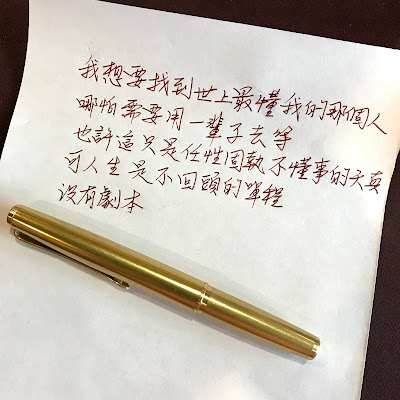 我想要找到世上最懂我的那個人
哪怕需要用一輩子去等
也許這只是任性固執不懂事的天真
可人生是不回頭的單程
沒有劇本